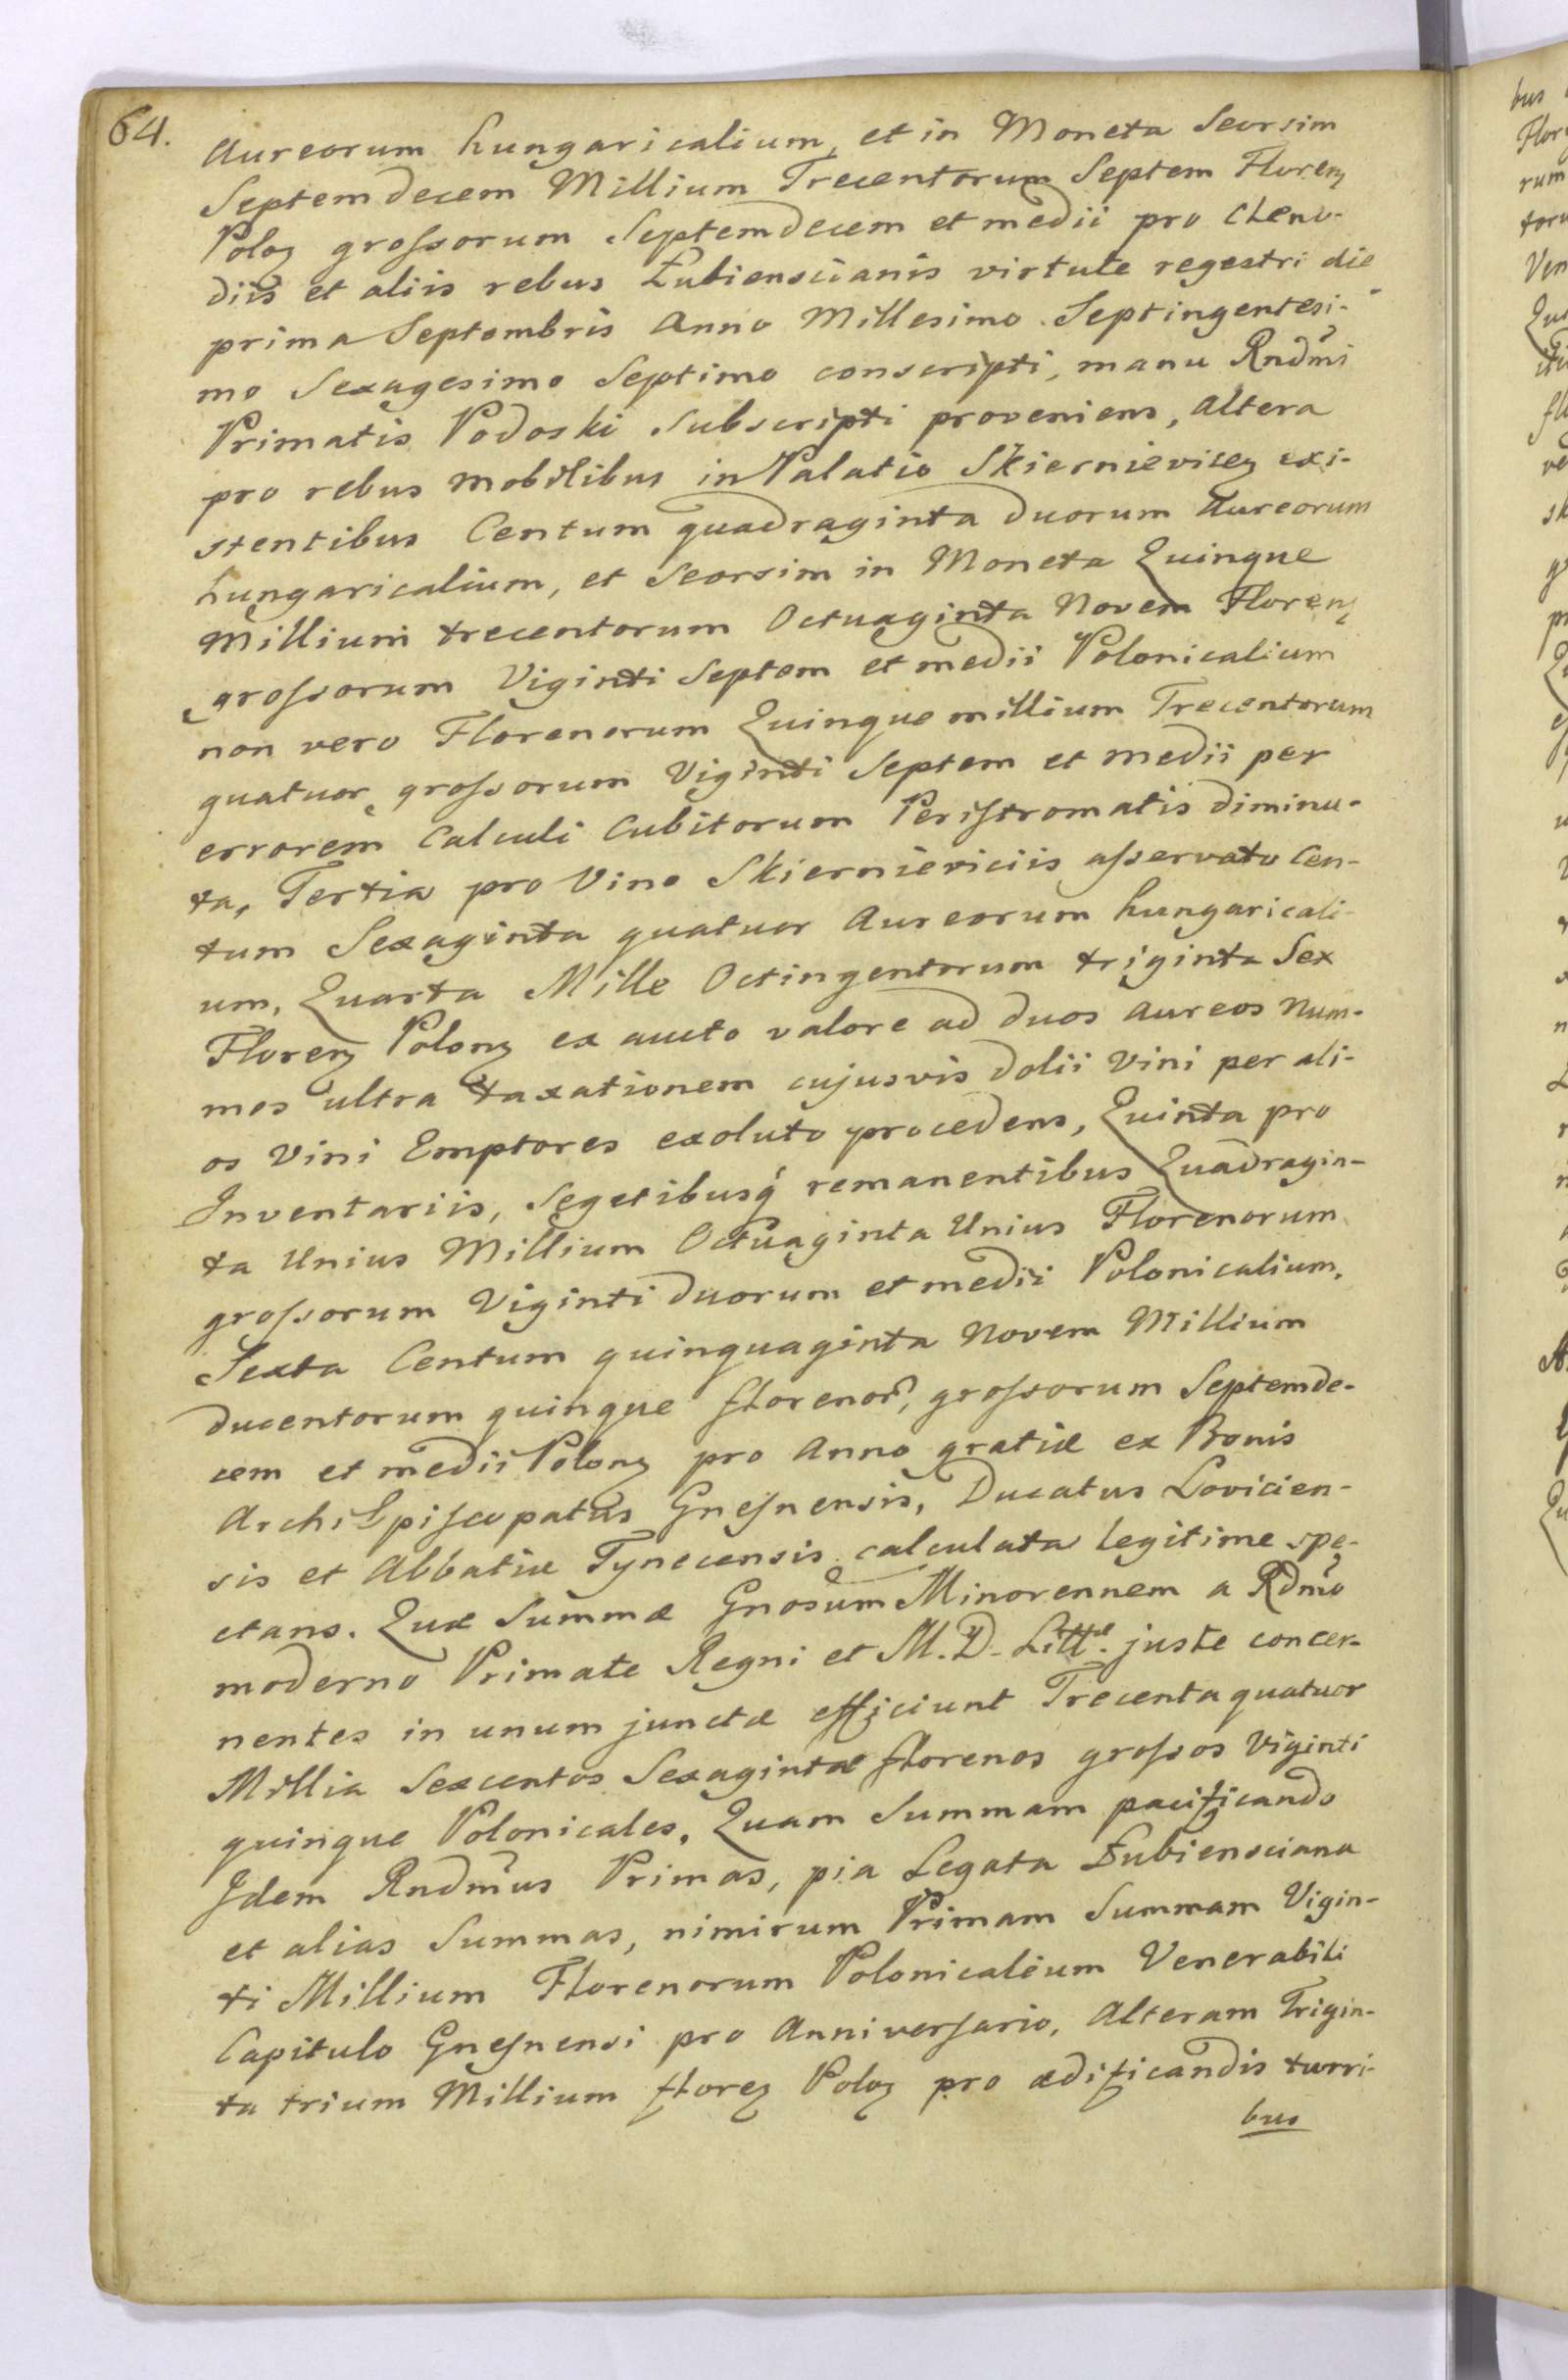 64.
Aureorum hungaricalium, et in Moneta Seorsim
Septemdecem Millium Trecentorum Septem Floreņ
Poloȝ grossorum Septemdecem et medii pro Cleno-
diis et aliis rebus Łubiensıianis virtute regestri die
prima Septembris Anno Millesimo Septingentesi-
mo Sexagesimo Septimo conscripti, manu Rndm̃i
Primatis Podoski Subscripti proveniens, Altera
pro rebus mobilibus in Palatio Skierniewiceȝ exi-
stentibus Centum quadraginta duorum Aureorum
hungaricalium, et Seorsim in Moneta Quinque
Millium trecentorum Octuaginta Novem Florenȝ
grossorum Viginti Septem et medii Polonicalium
non vero Florenorum Quinque millium Trecentorum
quatuor grossorum Viginti Septem et medii per
errorem Calculi Cubitorum Peristromatis diminu-
ta, Tertia pro Vino Skierniewiciis asservato Cen-
tum Sexaginta quatuor Aureorum hungaricali-
um, Quarta Mille Octingentorum triginta Sex
Florenȝ Polonȝ ex aucto valore ad duos Aureos Num-
mos ultra taxationem cujusvis dolii Vini per ali-
os Vini Emptores exoluto procedens, Quinta pro
Inventariis, Segetibusq́ remanentibus Quadragin-
ta Unius Millium Octuaginta Unius Florenorum
grossorum Viginti duorum et medii Polonicalium,
Sexta Centum quinquaginta Novem Millium
ducentorum quinque florenor̃, grossorum Septemde-
cem et medii Polonȝ pro Anno gratiæ ex Bonis
ArchiEpiscopatus Gnesnensis, Ducatus Lovicien-
sis et Abbatiæ Tynecensis calculata legitime spe-
ctans. Quæ Summæ Gnosum Minorennem a Rdm̃o
moderno Primate Regni et M. D. Littæ. juste concer-
nentes in unum junctæ efficiunt Trecenta quatuor
Millia Sexcentos Sexaginta florenos grossos Viginti
quinque Polonicales, Quam Summam pacificando
Idem Rndm̃us Primas, pia Legata Łubiensciana
et alias Summas, nimirum Primam Summam Vigin-
ti Millium Florenorum Polonicalium Venerabili
Capitulo Gnesnensi pro Anniversario, Alteram Trigin-
ta trium Millium floreȝ Poloȝ pro ædificandis turri-
bus